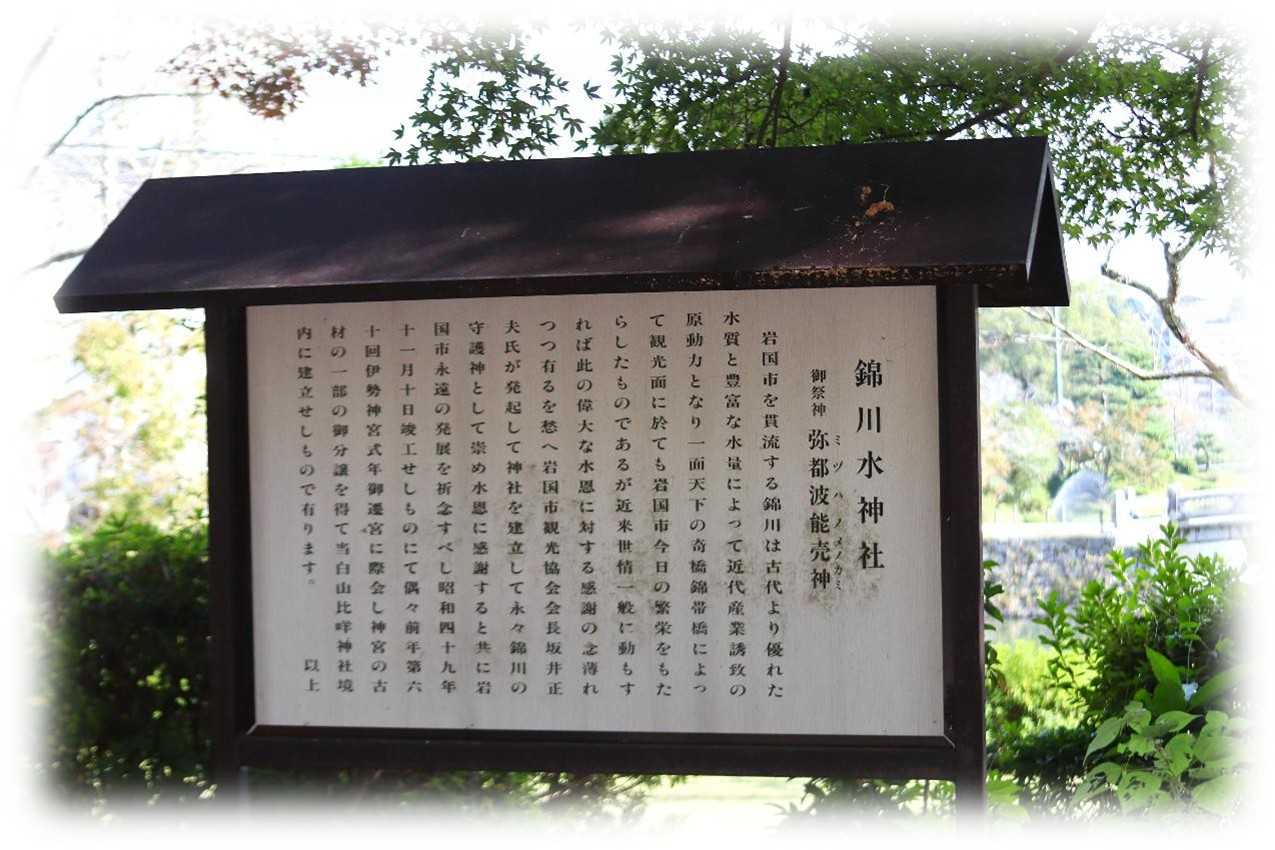 錦川水神社
御祭神 弥都波能売神
ミツハノメノカミ
岩国市を貫流する錦川は古代より優れた
水質と豊富な水量によって近代産業誘致の
原動力となり一面天下の奇橋錦帯橋によっ
て観光面に於ても岩国市今日の繁栄をもた
らしたものであるが近来世情一般に動もす
れば此の偉大な水恩に対する感謝の念薄れ
つつ有るを愁へ岩国市観光協会会長坂井正
夫氏が発起して神社を建立して永々錦川の
守護神として崇め水恩に感謝すると共に岩
国市永遠の発展を祈念すべし昭和四十九年
十一月十日竣工せしものにて偶々前年第六
十回伊勢神宮式年御遷宮に際会し神宮の古
材の一部の御分譲を得て当白山比咩神社境
内に建立せしもので有ります。
以上